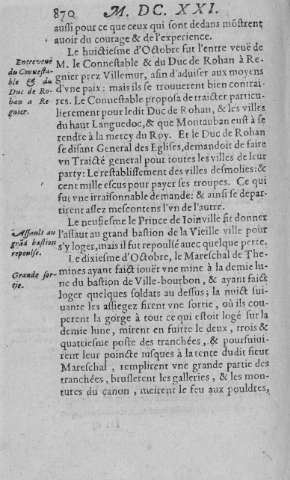 870 M. DC. XXI.
aussi pour ce que ceux qui sont dedans mõstrent
auoir du courage & de l'experience.
Le huictiesme d'Octobre fut l'entre veuë de
Entreveuë
M. le Connestable & du Duc de Rohan à Re-
du Connesta-
gnier prez Villemur, afin d'aduiser aux moyens
ble & du
d'vne paix: mais ils se trouuerent bien contrai-
Duc de Ro-
res. Le Connestable proposa de traicter particu-
han a Re-
lierement pour ledit Duc de Rohan, & les villes
gnier.
du haut Languedoc, & que Montauban eust à se
rendre à la mercy du Roy. Et le Duc de Rohan
se disant General des Eglises, demandoit de faire
vn Traicté general pour toutes les villes de leur
party: Le restablissement des villes desmolies: &
cent mille escus pour payer ses troupes. Ce qui
fut vne irraisonnable demande: & ainsi se depar-
tirent assez mescontens l'vn de l'autre.
Le neufiesme le Prince de Ioinville fit donner
Assault au
l'assaut au grand bastion de la Vieille ville pour
grãd bastion
s'y loger, mais il fut repoulsé auec quelque perte.
repoulse.
Le dixiesme d'Octobre, le Mareschal de The-
Grande sor-
mines ayant faict iouër vne mine à la demie lu-
tie.
ne du bastion de Ville-bourbon, & ayant faict
loger quelques soldats au dessus; la nuict sui-
uante les assiegez firent vne sortie, où ils cou-
perent la gorge à tout ce qui estoit logé sur la
demie lune, mirent en fuitte le deux, trois &
quatriesme poste des tranchées, & poursuiui-
rent leur poincte iusques à la tente dudit sieur
Mareschal, remplirent vne grande partie des
tranchées, bruslerent les galleries, & les mon-
tures du canon, meirent le feu aux pouldres,